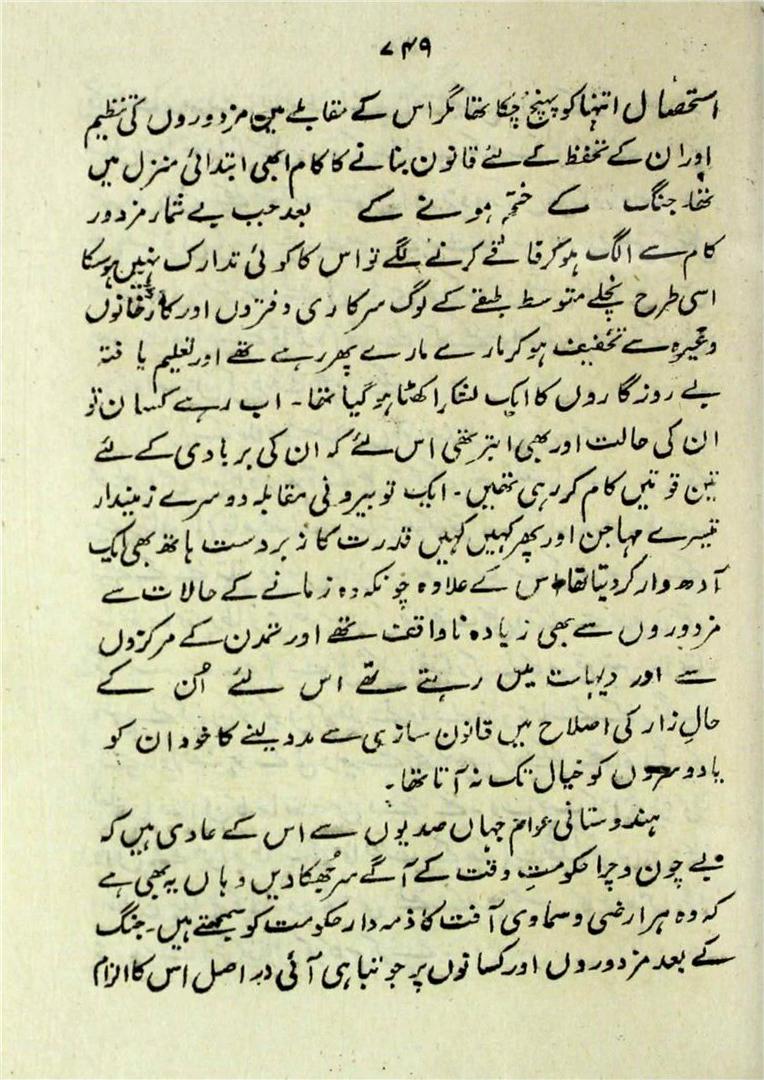 ۷۴۹
استحصال انتہا کو پہنچ چکا تھا مگر اس کے مقابلے میں مزدوروں کی تنظیم
اور ان کے تحفظ کے لئے قانون بنانے کا کام ابھی ابتدائی منزل میں
تھا۔ جنگ کے ختم ہونے کے بعد جب بے شمار مزدور
کام سے الگ ہو کر فاقے کرنے لگے تو اس کا کوئی تدارک نہیں ہو سکا
اسی طرح نچلے متوسط طبقے کے لوگ سرکاری دفتروں اور کارخانوں
وغیرہ سے تخفیف ہو کر مارے مارے پھر رہے تھے اور تعلیم یافتہ
بے روزگاروں کا ایک لشکر اکھٹا ہو گیا تھا۔ اب رہے کسان تو
ان کی حالت اور بھی ابتر تھی اس لئے کہ ان کی بربادی کے لئے
تین قوتیں کام کر رہی تھیں۔ ایک تو بیرونی مقابلہ دوسرے زمیندار
تیسرے مہاجن اور پھر کہیں کہیں قدرت کا زبردست ہاتھ بھی ایک
آدھ وار کر دیتا تھا اس کے علاوہ چونکہ وہ زمانے کے حالات سے
مزدوروں سے بھی زیادہ ناواقف تھے اور تمدن کے مرکزوں
سے اور دیہات میں رہتے تھے اس لئے اُن کے
حالِ زار کی اصلاح میں قانون سازی سے مدد لینے کا خود ان کو
یا دوسروں کو خیال تک نہ آتا تھا۔
ہندوستانی عوام جہاں صدیوں سے اس کے عادی ہیں کہ
بے چون و چرا حکومتِ وقت کے آگے سر جُھکا دیں وہاں یہ بھی ہے
کہ وہ ہر ارضی و سماوی آفت کا ذمہ دار حکومت کو سمجھتے ہیں۔ جنگ
کے بعد مزدوروں اور کسانوں پر جو تباہی آئی در اصل اس کا الزام